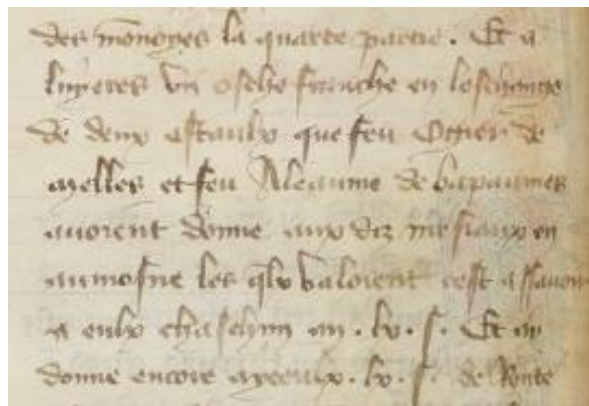 des monoyes la quarte partie. Et a
luyeres vn osche franche en leschange
de deux estaulx que feu Ogier de
ayelles et feu Aleaume de bapaumes
auoient donne aux diz mesiaux en
aumosne les qlx valoient cest assauoir
a eulx chaschun an. lx. s. Et
donne encore a yceulx. lx. s. de Rente